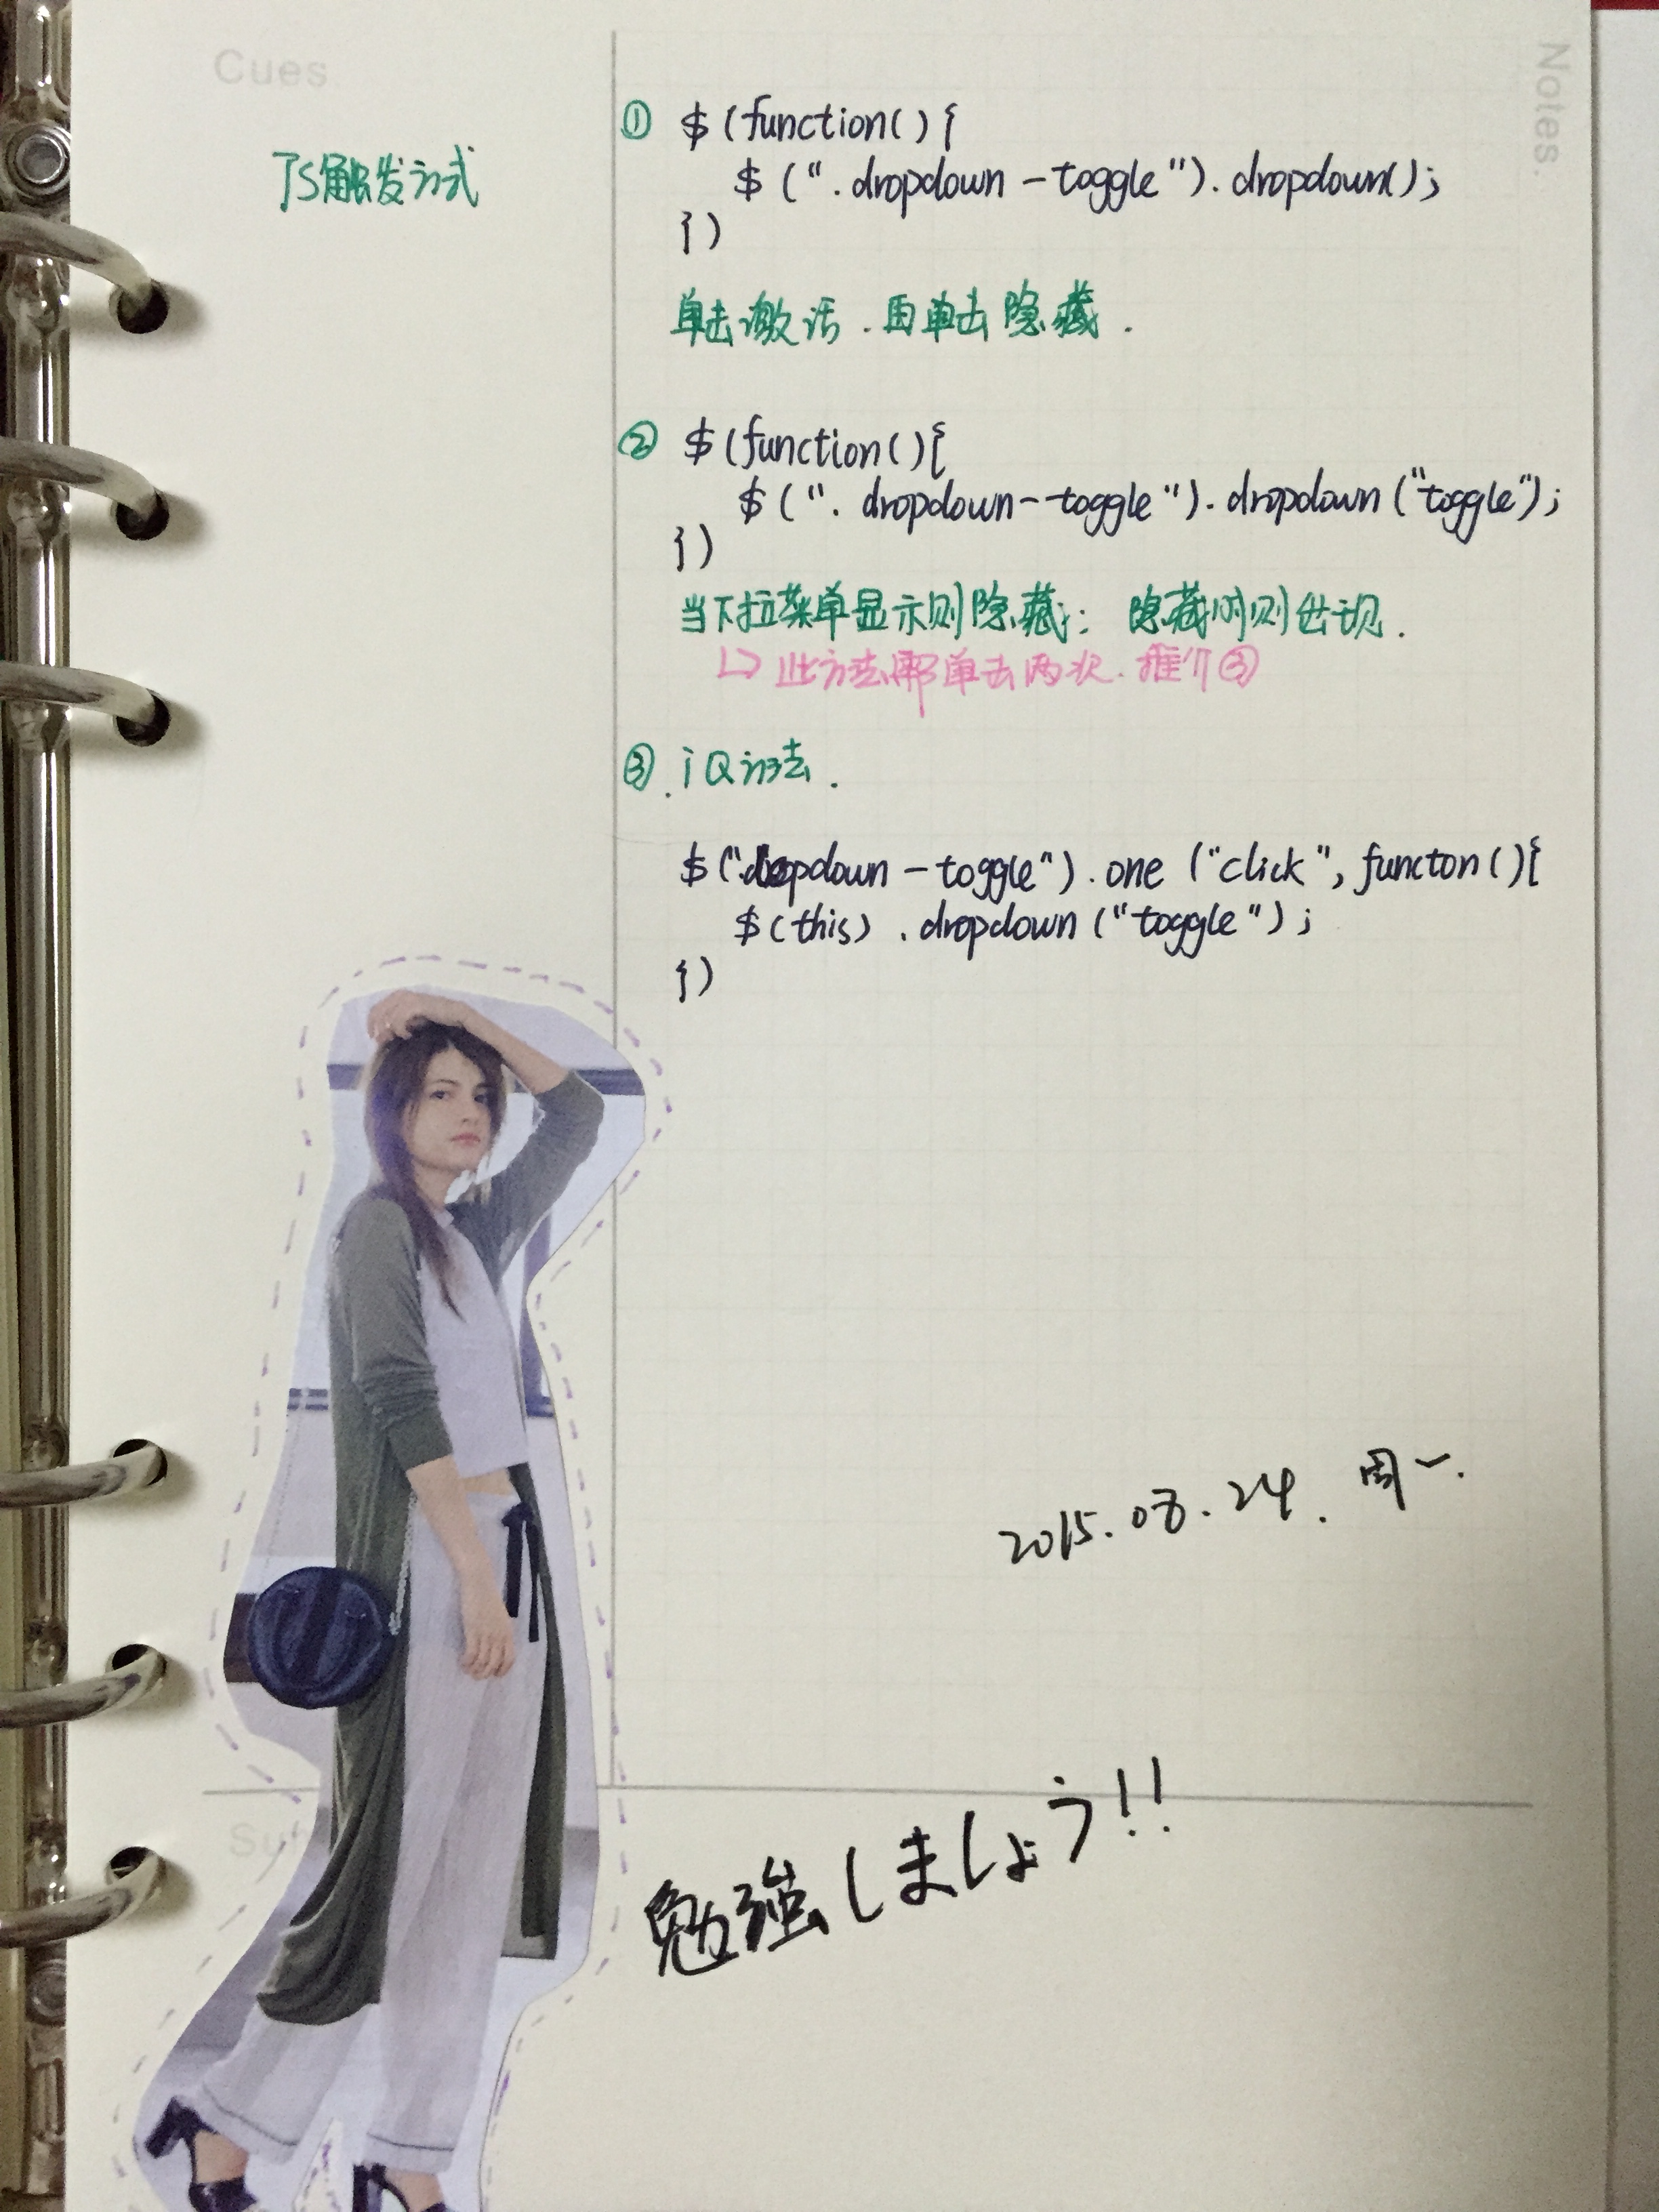 Cues
Notes.
JS触发方式
① $(function(){
$(".dropdown-toggle").dropdown();
})
单击激活.再单击隐藏.
② $(function(){
$(".dropdown--toggle").dropdown("toggle");
})
当下拉菜单显示则隐藏;隐藏时则出现.
↳此方法需单击两次.推介③
③.jQ方法.
$(".dropdown-toggle").one("click",functon(){
$(this).dropdown("toggle");
})
2015.08.24.周一.
勉強しましょう!!